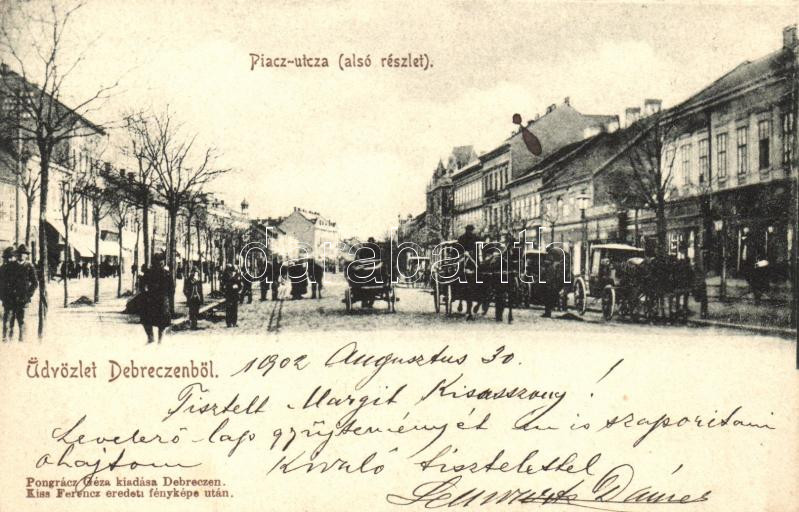 Piacz-utcza (alsó részlet).
darabanth
Üdvözlet Debreczenböl. 1902 Augusztus 30.
Tisztelt Margit Kisasszony!
Levelező-lap gyűjteményét én is szaporitani
óhajtom Kiváló tisztelettel
Pongrácz Géza kiadása Debreczen.
Kiss Ferencz eredeti fényképe után.
Dénes